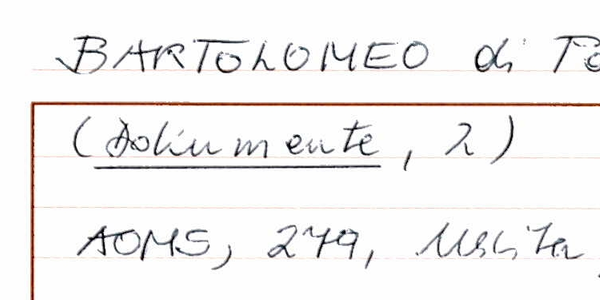 BARTOLOMEO di
(Dokumente, 2)
AOMS, 279, Uscita